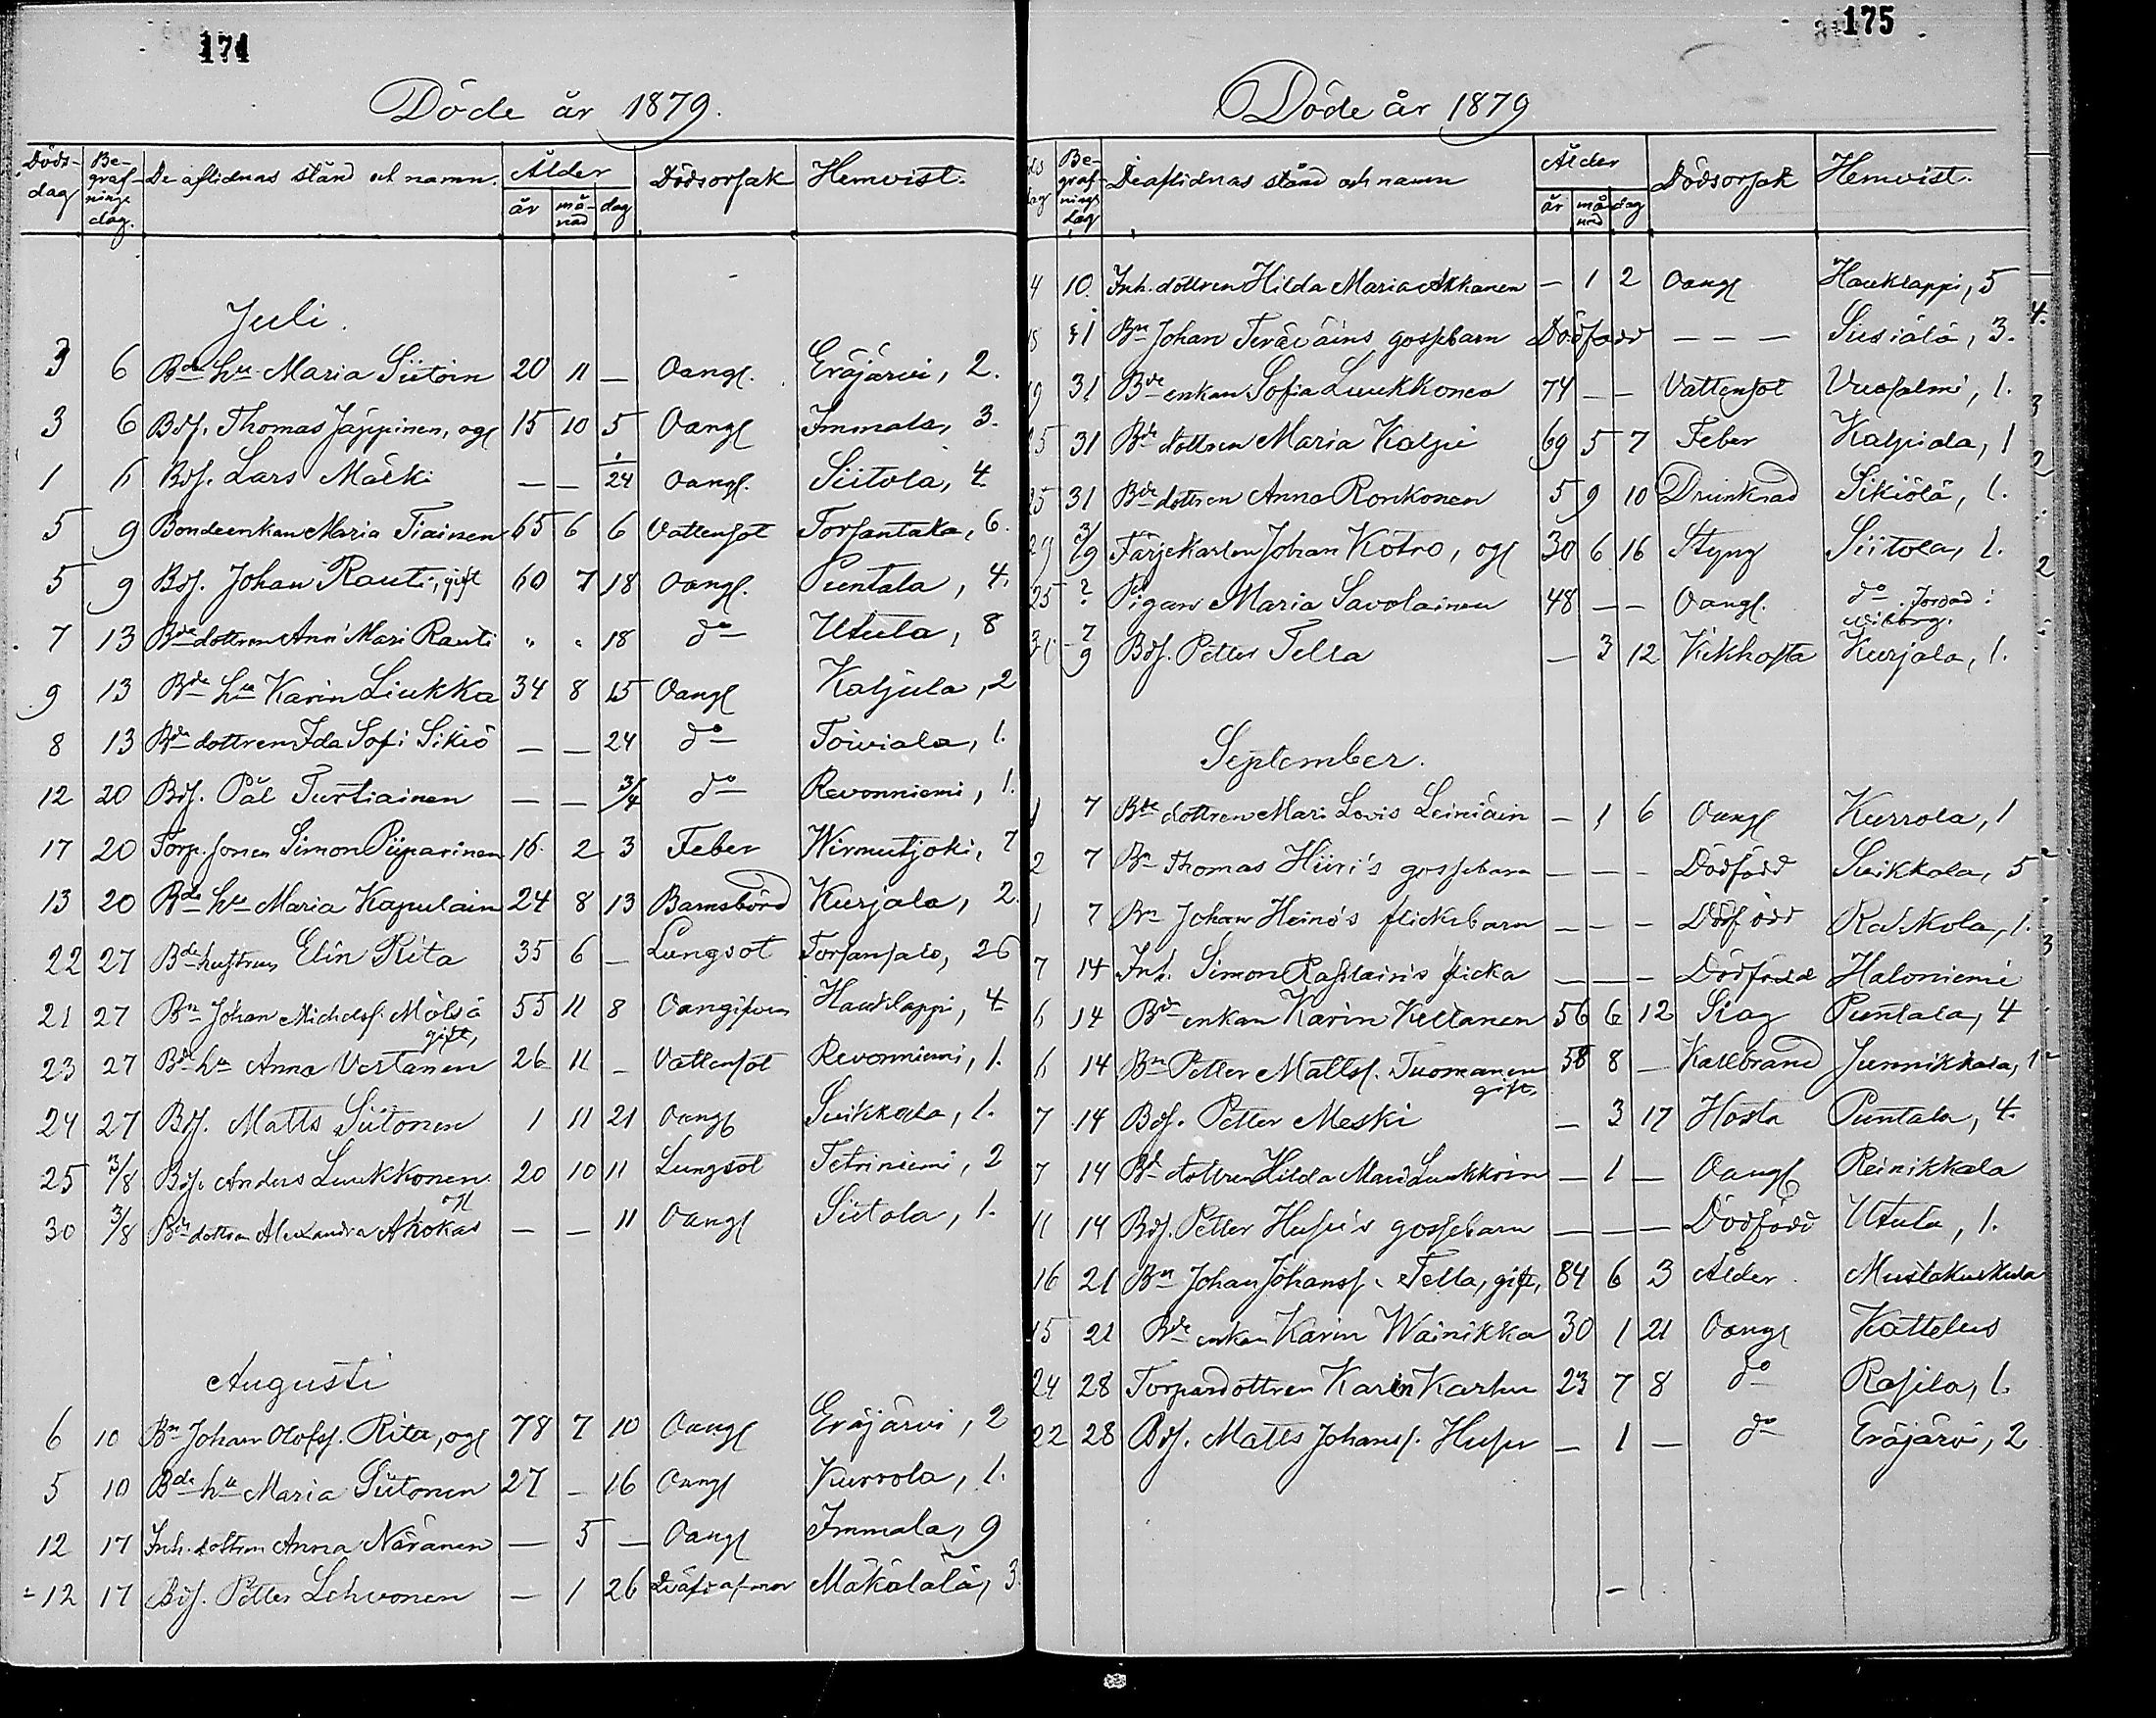 174
Döde år 1879.
Döds-dag | Be-graf-nings dag. | De aflidnas stånd och namn. | Ålder år | må-nad | dag | Dödsorsak | Hemvist.
Juli.
3 6 Bde hu Maria Siitoin 20 11 — Oangf. Eräjärvi, 2.
3 6 Bds. Thomas Jäppinen, ogf 15 10 5 Oangf Immala, 3.
1 6 Bds. Lars Mäski — — 24 Oangf. Siitola, 4
5 9 Bondeenkan Maria Tiainen 65 6 6 Vattensot Torsantaka, 6.
5 9 Bds. Johan Rauti, gift 60 7 18 Oangf. Puntala, 4.
7 13 Bde dottren Ann Mari Rauti " " 18 do Utula, 8
9 13 Bde hu Karin Liukka 34 8 15 Oangf Kaljula, 2
8 13 Bde dottren Ida Sofi Sikiö — — 24 do Toiviala, 1.
12 20 Bds. Pål Turtiainen — — 3/4 do Revonniemi, 1.
17 20 Torp. sonen Simon Piiparinen 16 2 3 Feber Wirmutjoki, 7
13 20 Bde hu Maria Kapulain 24 8 13 Barnsbörd Kurjala, 2.
22 27 Bde hustrun Elin Rita 35 6 — Lungsot Torsansalo, 26
21 27 Bn Johan Michelss. Mölsä gift, 55 11 8 Oangifven Hauklappi, 4
23 27 Bde hu Anna Vertanen 26 11 — Vattensot Revonniemi, 1.
24 27 Bds. Matts Siitonen 1 11 21 Oangf Suikkala, 1.
25 3/8 Bds. Anders Luukkonen ogf 20 10 11 Lungsot Tetriniemi, 2
30 3/8 Bde dottren Alexandra Ahokas — — 11 Oangf Siitola, 1.
Augusti
6 10 Bn Johan Olofss. Rita, ogf 78 7 10 Oangf Eräjärvi, 2
5 10 Bde hu Maria Siitonen 27 — 16 Oangf Kurrola, 1.
12 17 Inh. dottren Anna Näränen — 5 — Oangf Immala, 9
12 17 Bds. Petter Lehvonen — 1 26 Mäkälälä, 3
175
Döde år 1879
dag | Be-graf-nings dag | De aflidnas stånd och namn | Ålder år | må-nad | dag | Dödsorsak | Hemvist.
4 10. Inh. dottren Hilda Maria Akkanen — 1 2 Oangf Hauklappi, 5
31 Bn Johan Teräväins gossebarn Dödfödd — — — Susiälä, 3.
9 31 Bde enkan Sofia Luukkonen 74 — — Vattensot Vuosalmi, 1.
25 31 Bde dottren Maria Kalpi 69 5 7 Feber Kalpiala, 1
25 31 Bde dottren Anna Ronkonen 5 9 10 Drunknad Sikiölä, 1.
29 3/9 Färjekarlen Johan Kotro, ogf 30 6 16 Styng Siitola, 1.
25 ? Pigan Maria Savolainen 48 — — Oangf. do Jordad i Wiborg.
31 7/9 Bds. Petter Tella — 3 12 Kikhosta Kurjala, 1.
September.
1 7 Bde dottren Mari Lovis Leiniäin — 1 6 Oangf Kurrola, 1
2 7 Bn Thomas Hiiri's gossebarn — — — Dödfödd Suikkala, 5
1 7 Bn Johan Heino's flickebarn — — — Dödfödd Raskola, 1.
7 14 Inh. Simon flicka — — — Dödfödd Haloniemi
6 14 Bde enkan Karin Kultanen 56 6 12 Slag Puntala, 4
6 14 Bn Petter Mattss. Tuomanen gift, 58 8 — Kallbrand Junnikkala, 1
7 14 Bds. Petter Meski — 3 17 Hosta Puntala, 4.
7 14 Bde dottren Hilda Mari Luukkoin — 1 — Oangf Reinikkala
11 14 Bds. Petter Husu's gossebarn — — — Dödfödd Utula, 1.
16 21 Bn Johan Johanss. Tella, gift, 84 6 3 Ålder Mustakuukula
15 21 Bde enkan Karin Wainikka 30 1 21 Oangf Kattelus
24 28 Torpardottren Karin Karhu 23 7 8 do Rasila, 1.
22 28 Bds. Matts Johanss. Husu — 1 — do Eräjärvi, 2